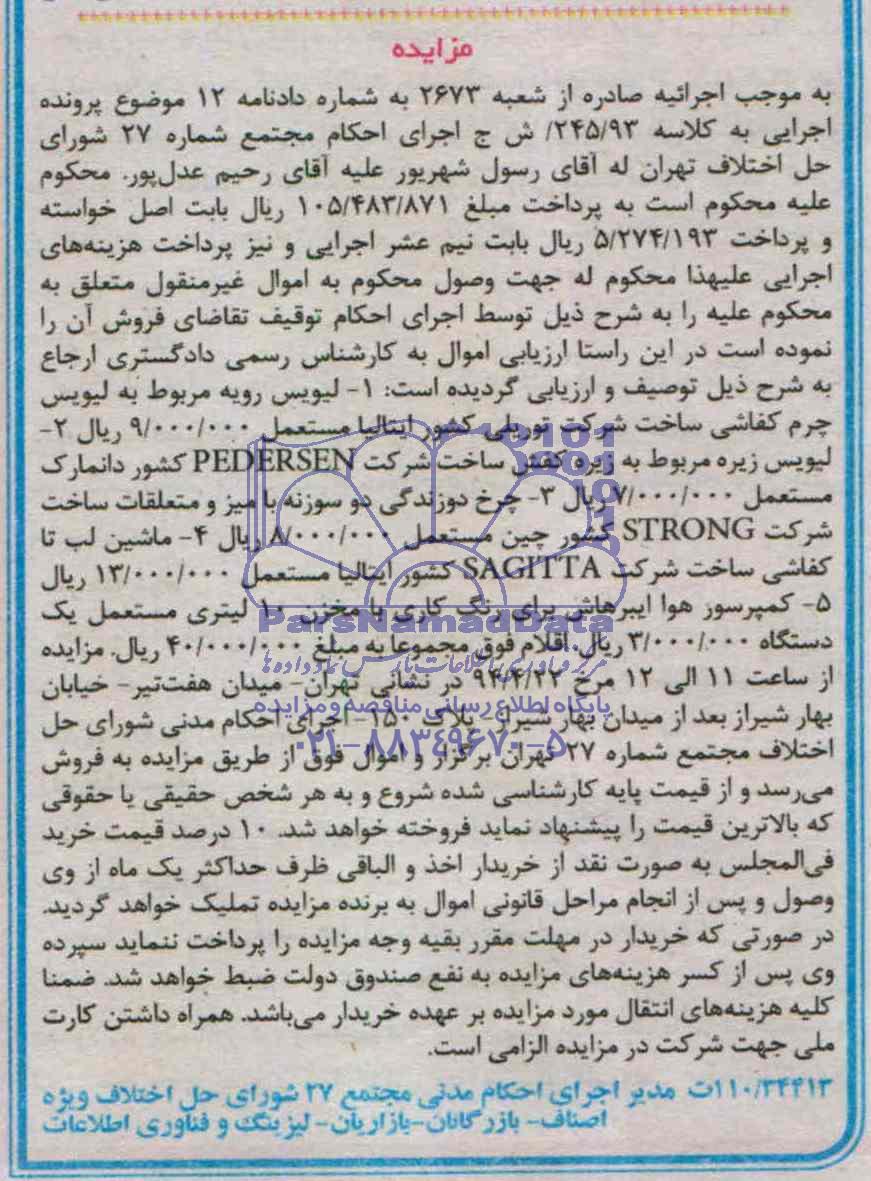 مزایده
به موجب اجرائیه صادره از شعبه ۲۶۷۳ به شماره دادنامه ۱۲ موضوع پرونده
اجرایی به کلاسه ۲۴۵/۹۳/ ش ج اجرای احکام مجتمع شماره ۲۷ شورای
حل اختلاف تهران له آقای رسول شهریور علیه آقای رحیم عدل‌پور. محکوم
علیه محکوم است به پرداخت مبلغ ۱۰۵/۴۸۳/۸۷۱ ریال بابت اصل خواسته
و پرداخت ۵/۲۷۴/۱۹۳ ریال بابت نیم عشر اجرایی و نیز پرداخت هزینه‌های
اجرایی علیهذا محکوم له جهت وصول محکوم به اموال غیرمنقول متعلق به
محکوم علیه را به شرح ذیل توسط اجرای احکام توقیف تقاضای فروش آن را
نموده است در این راستا ارزیابی اموال به کارشناس رسمی دادگستری ارجاع
به شرح ذیل توصیف و ارزیابی گردیده است: ۱- لیویس رویه مربوط به لیویس
چرم کفاشی ساخت شرکت توریلی کشور ایتالیا مستعمل ۹/۰۰۰/۰۰۰ ریال ۲-
لیویس زیره مربوط به زیره کفش ساخت شرکت PEDERSEN کشور دانمارک
مستعمل ۷/۰۰۰/۰۰۰ ریال ۳- چرخ دوزندگی دو سوزنه با میز و متعلقات ساخت
شرکت STRONG کشور چین مستعمل ۸/۰۰۰/۰۰۰ ریال ۴- ماشین لب تا
کفاشی ساخت شرکت SAGITTA کشور ایتالیا مستعمل ۱۳/۰۰۰/۰۰۰ ریال
۵- کمپرسور هوا ایبرهاش برای رنگ کاری با مخزن ۱۰ لیتری مستعمل یک
ParsNamadData
دستگاه ۳/۰۰۰/۰۰۰ ریال. اقلام فوق مجموعا به مبلغ ۴۰/۰۰۰/۰۰۰ ریال. مزایده
از ساعت ۱۱ الی ۱۲ مرخ ۹۴/۴/۲۲ در نشانی تهران- میدان هفت‌تیر- خیابان
پایگاه اطلاع رسانی مناقصه و مزایده
بهار شیراز بعد از میدان بهار شیراز- پلاک ۱۵۰- اجرای احکام مدنی شورای حل
۰۲۱-۸۸۳۴۹۶۷۰-۵
اختلاف مجتمع شماره ۲۷ تهران برگزار و اموال فوق از طریق مزایده به فروش
می‌رسد و از قیمت پایه کارشناسی شده شروع و به هر شخص حقیقی یا حقوقی
که بالاترین قیمت را پیشنهاد نماید فروخته خواهد شد. ۱۰ درصد قیمت خرید
فی‌المجلس به صورت نقد از خریدار اخذ و الباقی ظرف حداکثر یک ماه از وی
وصول و پس از انجام مراحل قانونی اموال به برنده مزایده تملیک خواهد گردید.
در صورتی که خریدار در مهلت مقرر بقیه وجه مزایده را پرداخت ننماید سپرده
وی پس از کسر هزینه‌های مزایده به نفع صندوق دولت ضبط خواهد شد. ضمنا
کلیه هزینه‌های انتقال مورد مزایده بر عهده خریدار می‌باشد. همراه داشتن کارت
ملی جهت شرکت در مزایده الزامی است.
۱۱۰/۳۴۴۱۳ت مدیر اجرای احکام مدنی مجتمع ۲۷ شورای حل اختلاف ویژه
اصناف- بازرگانان-بازاریان- لیزینگ و فناوری اطلاعات